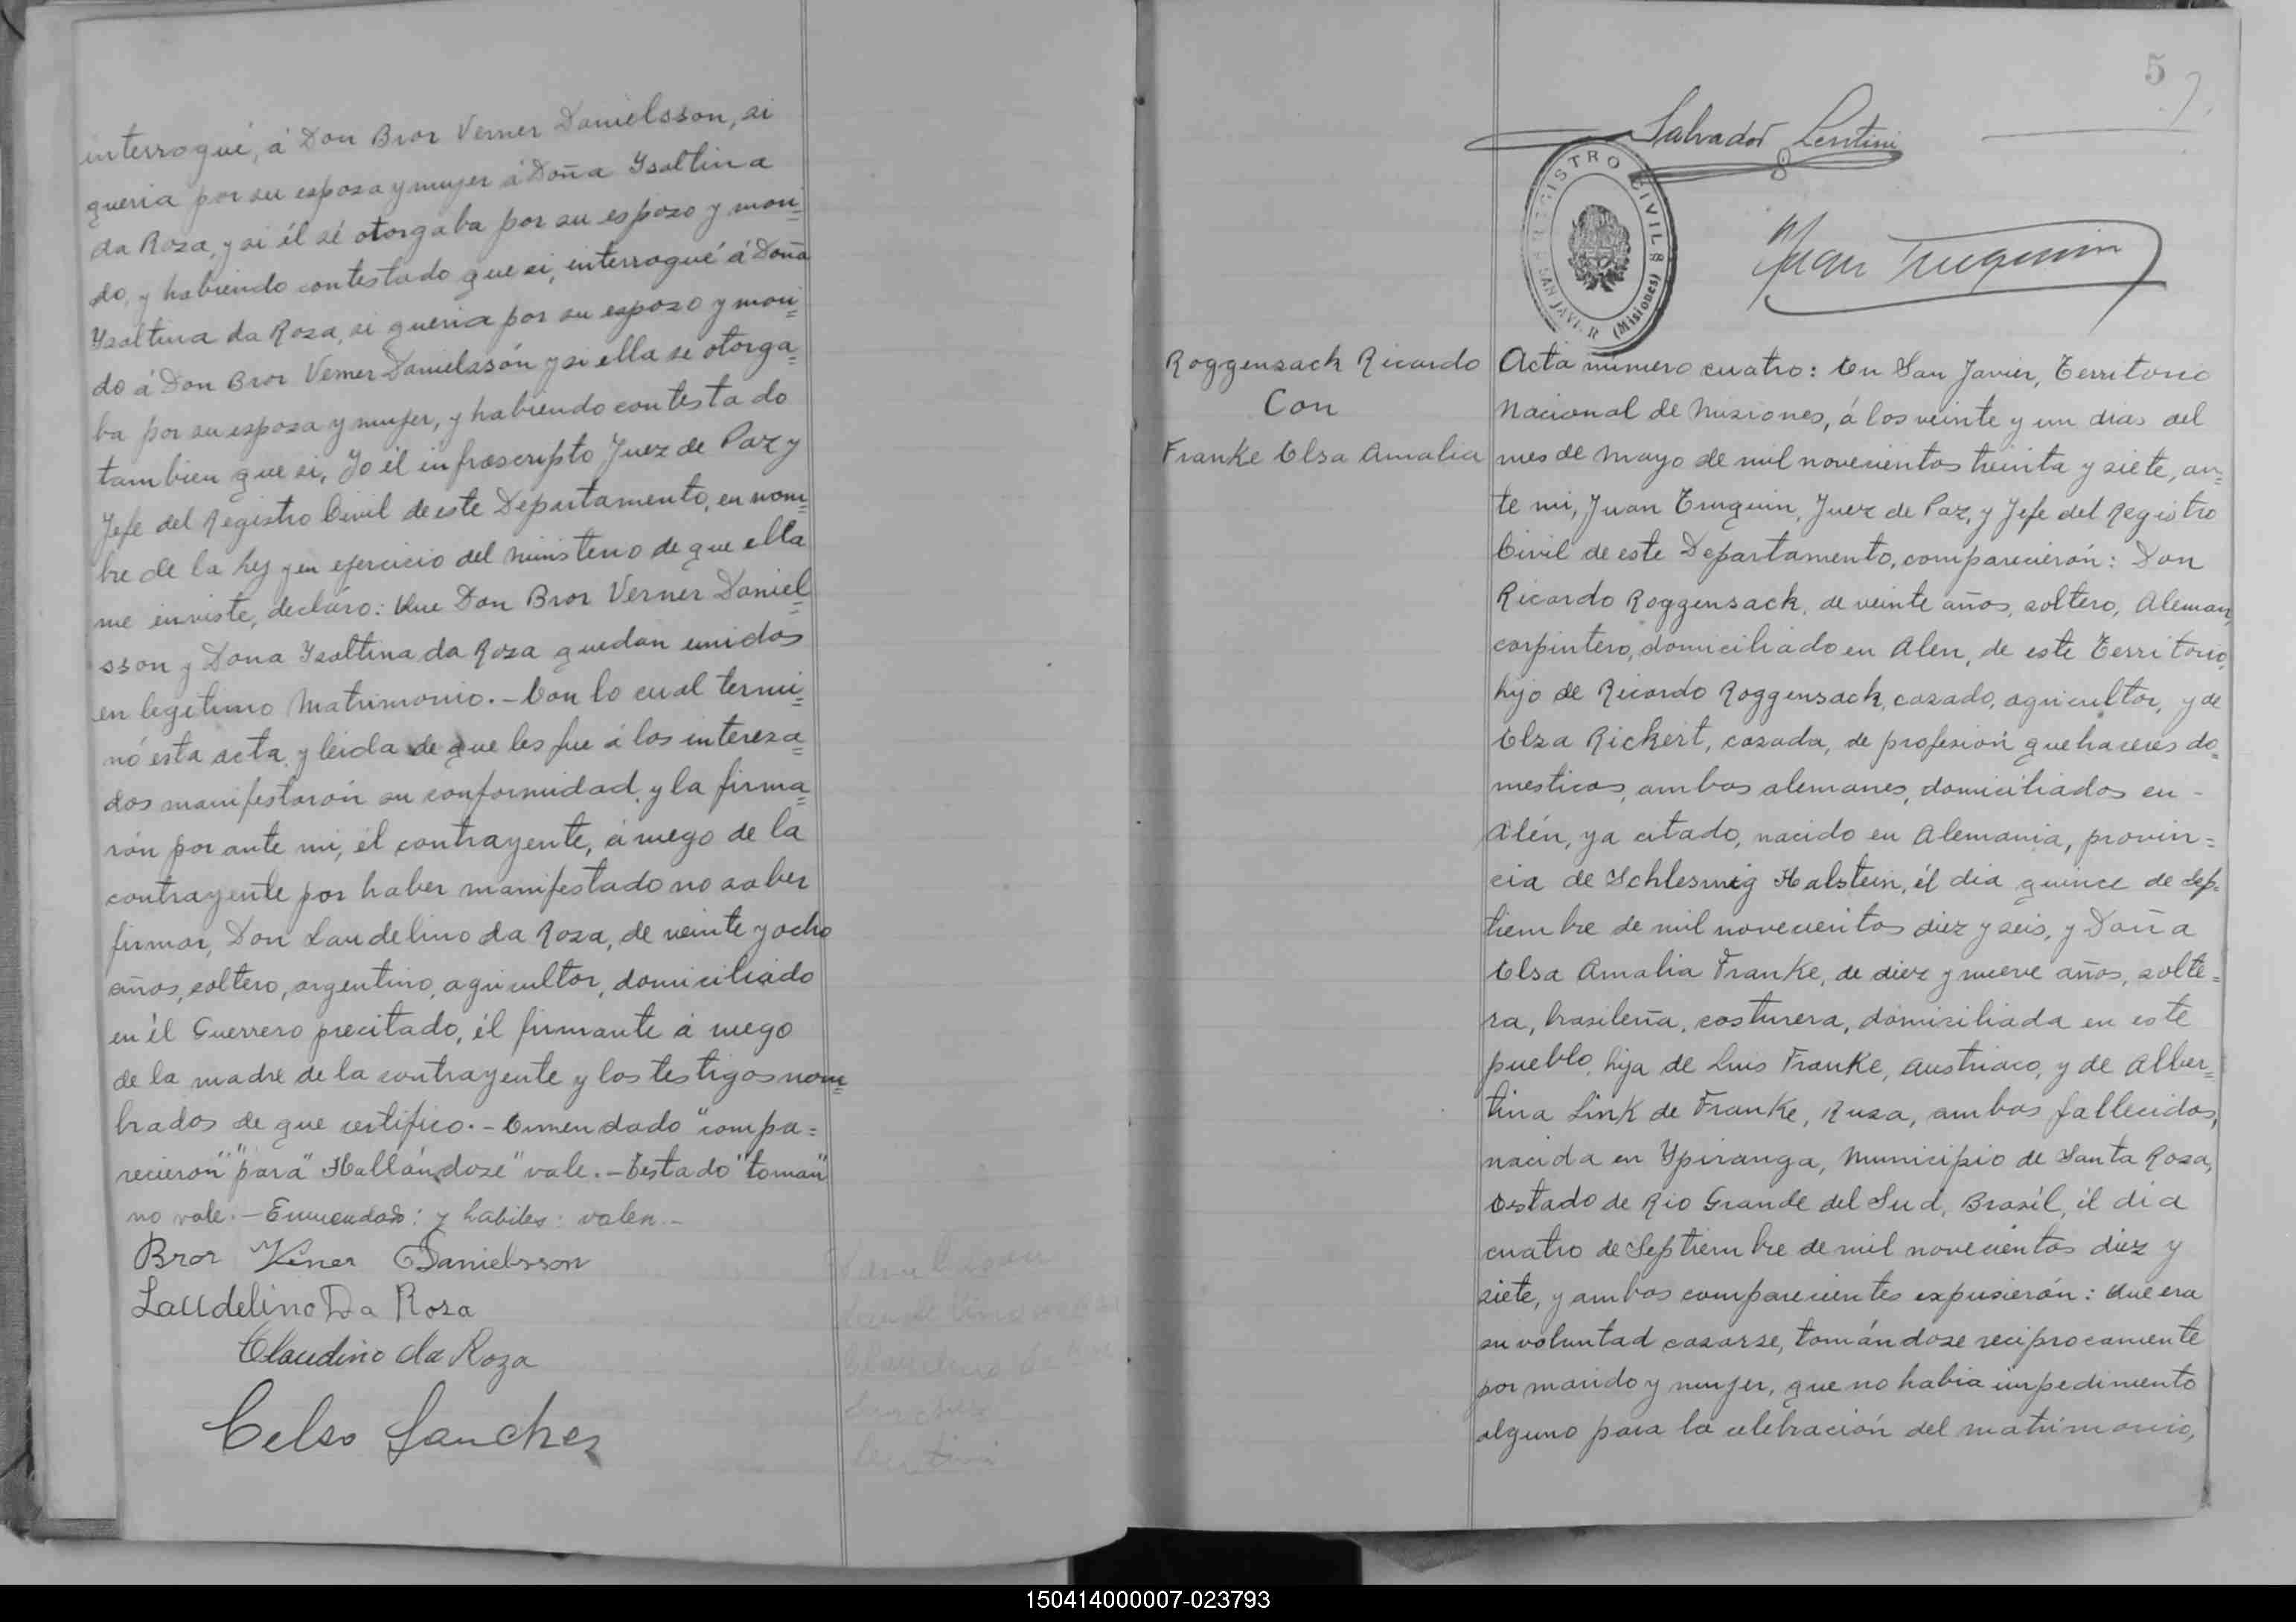 interrogué, á Don Bror Verner Danielsson, si
queria por su esposa y mujer á Doña Ysaltina
da Rosa, y si él sé otorgaba por su esposo y mari=
do, y habiendo contestado que si, interrogué á Doña
Ysaltina da Rosa, si queria por su esposo y mari=
do á Don Bror Verner Danielssón y si ella se otorga=
ba por su esposa y mujer, y habiendo contestado
tambien que si, Yo él infrascripto Juez de Paz y
Jefe del Registro Civil de este Departamento, en nom=
bre de la ley y en ejercicio del ministerio de que ella
me inviste, decláro: Que Don Bror Verner Daniel=
sson y Dona Ysaltina da Rosa quedan unidos
en legitimo Matrimonio.- Con lo cual termi=
nó esta acta, y leida de que les fue á los interesa=
dos manifestarón su conformidad, y la firma=
rón por ante mi, él contrayente, á ruego de la
contrayente por haber manifestado no saber
firmar, Don Laudelino da Rosa, de veinte y ocho
años, soltero, argentino, agricultor, domiciliado
en él Guerrero precitado, él firmante á ruego
de la madre de la contrayente y los testigos nom=
brados de que certifico.- Enmendado "compa=
recieron" "para" Hallándose" vale.- Testado "toman"
no vale.- Enmendado: y habiles: valen.-
Bror Verner Danielsson
Laudelino Da Rosa
Claudino da Roza
Celso Sanchez
5
Salvador Lentini
REGISTRO CIVIL
SAN JAVIER (Misiones)
Juan Truquin
Roggensack Ricardo
Con
Franke Elsa Amalia
Acta número cuatro: En San Javier, Territorio
Nacional de Misiones, á los veinte y un dias del
mes de Mayo de mil novecientos treinta y siete, an=
te mi, Juan Truquin, Juez de Paz, y Jefe del Registro
Civil de este Departamento, comparecierón: Don
Ricardo Roggensack, de veinte años, soltero, Aleman,
carpintero, domiciliado en Alen, de este Territorio,
hijo de Ricardo Roggensack, casado, agricultor, y de
Elsa Rickert, casada, de profesión quehaceres do=
mesticos, ambos alemanes, domiciliados en -
Alén, ya citado, nacido en Alemania, provin=
cia de Schleswig Halstein, él dia quince de Sep=
tiembre de mil novecientos diez y seis, y Doña
Elsa Amalia Franke, de diez y nueve años, solte=
ra, brasileña, costurera, domiciliada en este
pueblo, hija de Luis Franke, Austriaco, y de Alber=
tina Link de Franke, Rusa, ambos fallecidos,
nacida en Ypiranga, Municipio de Santa Rosa,
Estado de Rio Grande del Sud, Brasil, él dia
cuatro de Septiembre de mil novecientos diez y
siete, y ambos comparecientes expusierón: Que era
su voluntad casarse, tomándose reciprocamente
por marido y mujer, que no habia impedimento
alguno para la celebración del matrimonio,
150414000007-023793